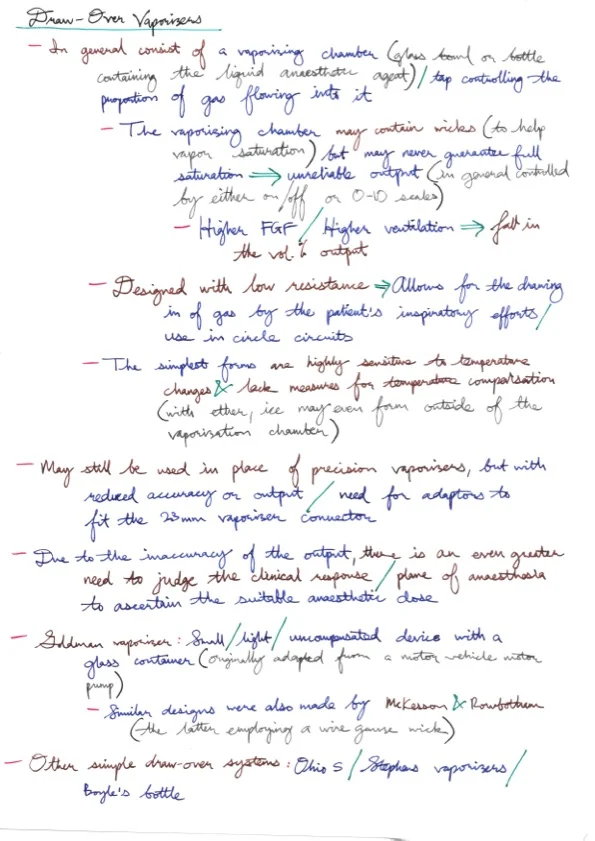 Draw-Over Vaporizers
- In general consist of a vaporizing chamber (glass bowl or bottle
containing the liquid anaesthetic agent)/tap controlling the
proportion of gas flowing into it
- The vaporizing chamber may contain wicks (to help
vapor saturation) but may never guarantee full
saturation ⇒ unreliable output (in general controlled
by either on/off or 0-10 scales)
- Higher FGF / Higher ventilation ⇒ fall in
the vol.% output
- Designed with low resistance ⇒ Allows for the drawing
in of gas by the patient's inspiratory efforts/
use in circle circuits
- The simplest forms are highly sensitive to temperature
changes & lack measures for temperature compensation
(with ether, ice may even form outside of the
vaporization chamber)
- May still be used in place of precision vaporizers, but with
reduced accuracy or output / need for adaptors to
fit the 23mm vaporizer connector
- Due to the inaccuracy of the output, there is an even greater
need to judge the clinical response / plane of anaesthesia
to ascertain the suitable anaesthetic dose
- Goldman vaporizer: Small/light/uncompensated device with a
glass container (originally adapted from a motor vehicle motor
pump)
- Similar designs were also made by McKesson & Rowbotham
(the latter employing a wire gauze wick)
- Other simple draw-over systems: Ohio S / Stephens vaporizers /
Boyle's bottle